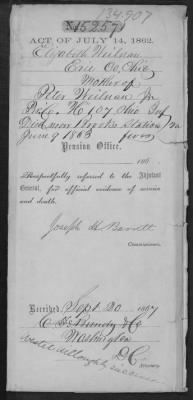 134.907
152571
ACT OF JULY 14, 1862.
Elizabeth
Erie Co, Ohio
Mother of
Peter Jr
Pr. Co. K 107 Ohio Inf
Died near Brooks Station Va
June 9 1863 fever
Pension Office.
186
Respectfully referred to the Adjutant
General, for official evidence of service
and death.
Joseph H Barrett
Commissioner.
Received, Sept. 20, 1867
C. Bundy & Co
Washington
D C
Attorney